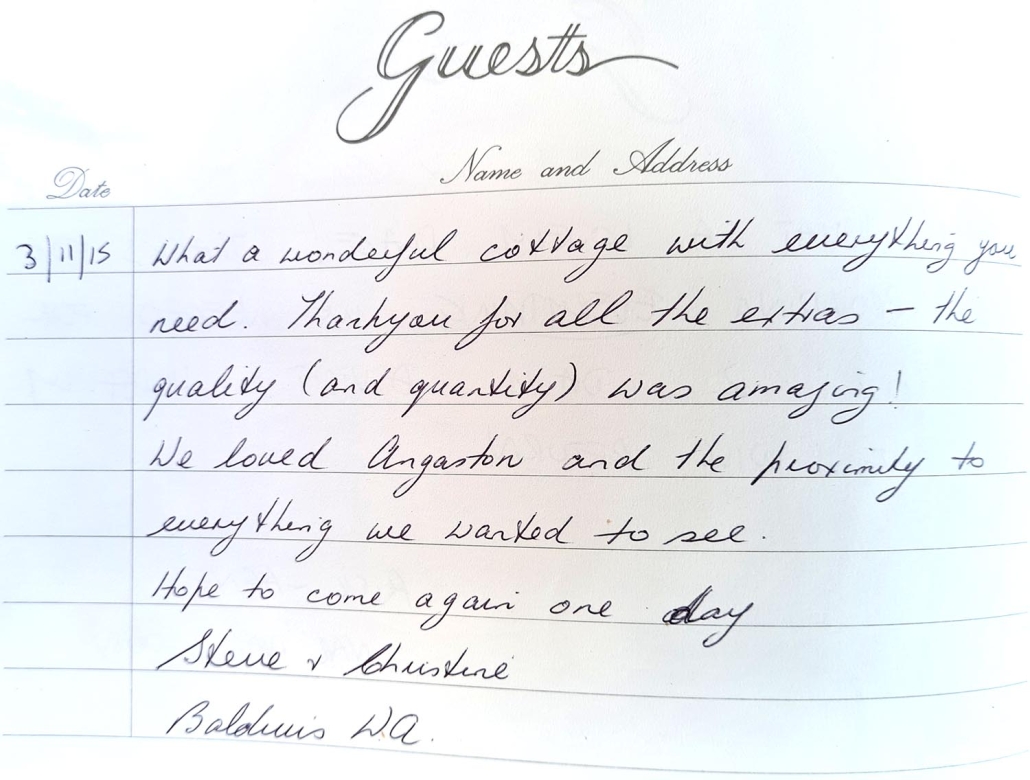 Guests
Date Name and Address
3/11/15 What a wonderful cottage with everything you
need. Thankyou for all the extras – the
quality (and quantity) was amazing!
We loved Angaston and the proximity to
everything we wanted to see.
Hope to come again one day
Steve & Christine
Baldivis W.A.